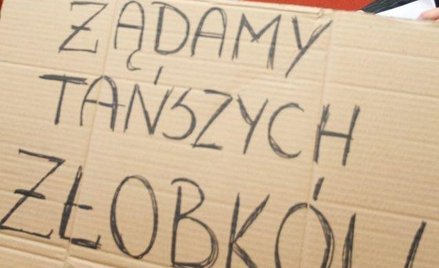 ŻĄDAMY
TAŃSZYCH
ŻŁOBKÓW